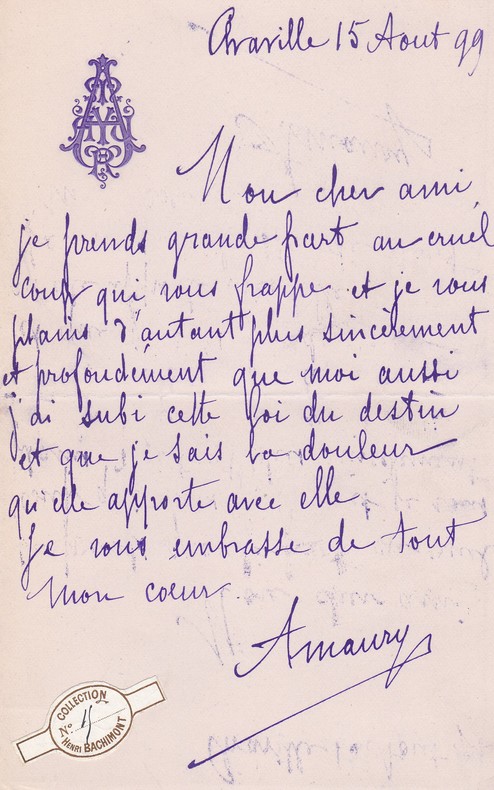 Araville 15 Aout 99
Mon cher ami,
je prends grande part au cruel
coup qui vous frappe et je vous
plains d'autant plus sincèrement
et profondément que moi aussi
j'ai subi cette loi du destin
et que je sais la douleur
qu'elle apporte avec elle
Je vous embrasse de tout
mon coeur.
Amaury
COLLECTION
No. 4
HENRI BACHIMONT